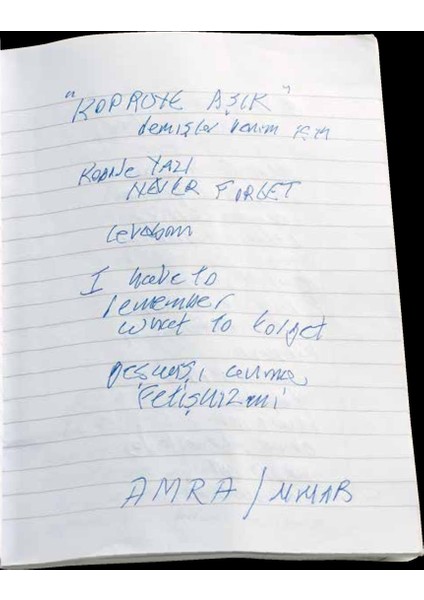 "KÖPRÜYE AŞIK"
demişler benim için
Köprüde YAZI
NEVER FORGET
Cevabım
I have to
remember
what to forget
geçmişi anma
Fetişizmi
AMRA /